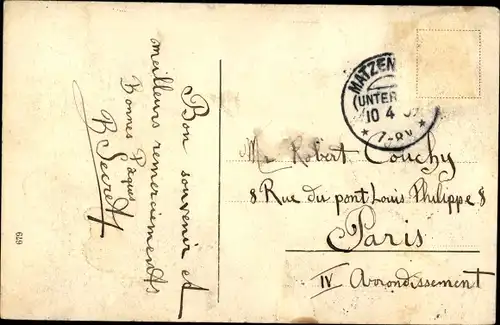 Bon souvenir et
meilleurs remerciements
Bonnes Pâques
B Secret
619
MATZEN
(UNTER
10 4
Mr Robert Couchy
8 Rue du pont Louis Philippe 8
Paris
IV Arrondissement